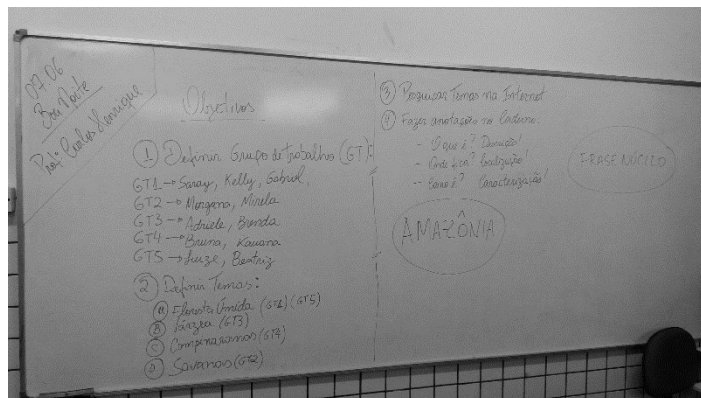 07.06
Boa Noite
Prof: Carlos Henrique
Objetivos
① Definir Grupo de trabalho (GT):
GT1 → Saray, Kelly, Gabriel,
GT2 → Morgana, Mirela
GT3 → Adriele, Brenda
GT4 → Bruna, Kauana
GT5 → Luize, Beatriz
② Definir Temas:
Ⓐ Floresta Úmida (GT1) (GT5)
Ⓑ Várzea (GT3)
Ⓒ Campinaranas (GT4)
Ⓓ Savanas (GT2)
③ Pesquisar Temas na Internet
④ Fazer anotações no Caderno:
- O que é? Definição!
- Onde fica? Localização!
- Como é? Caracterização!
AMAZÔNIA
FRASE NÚCLEO